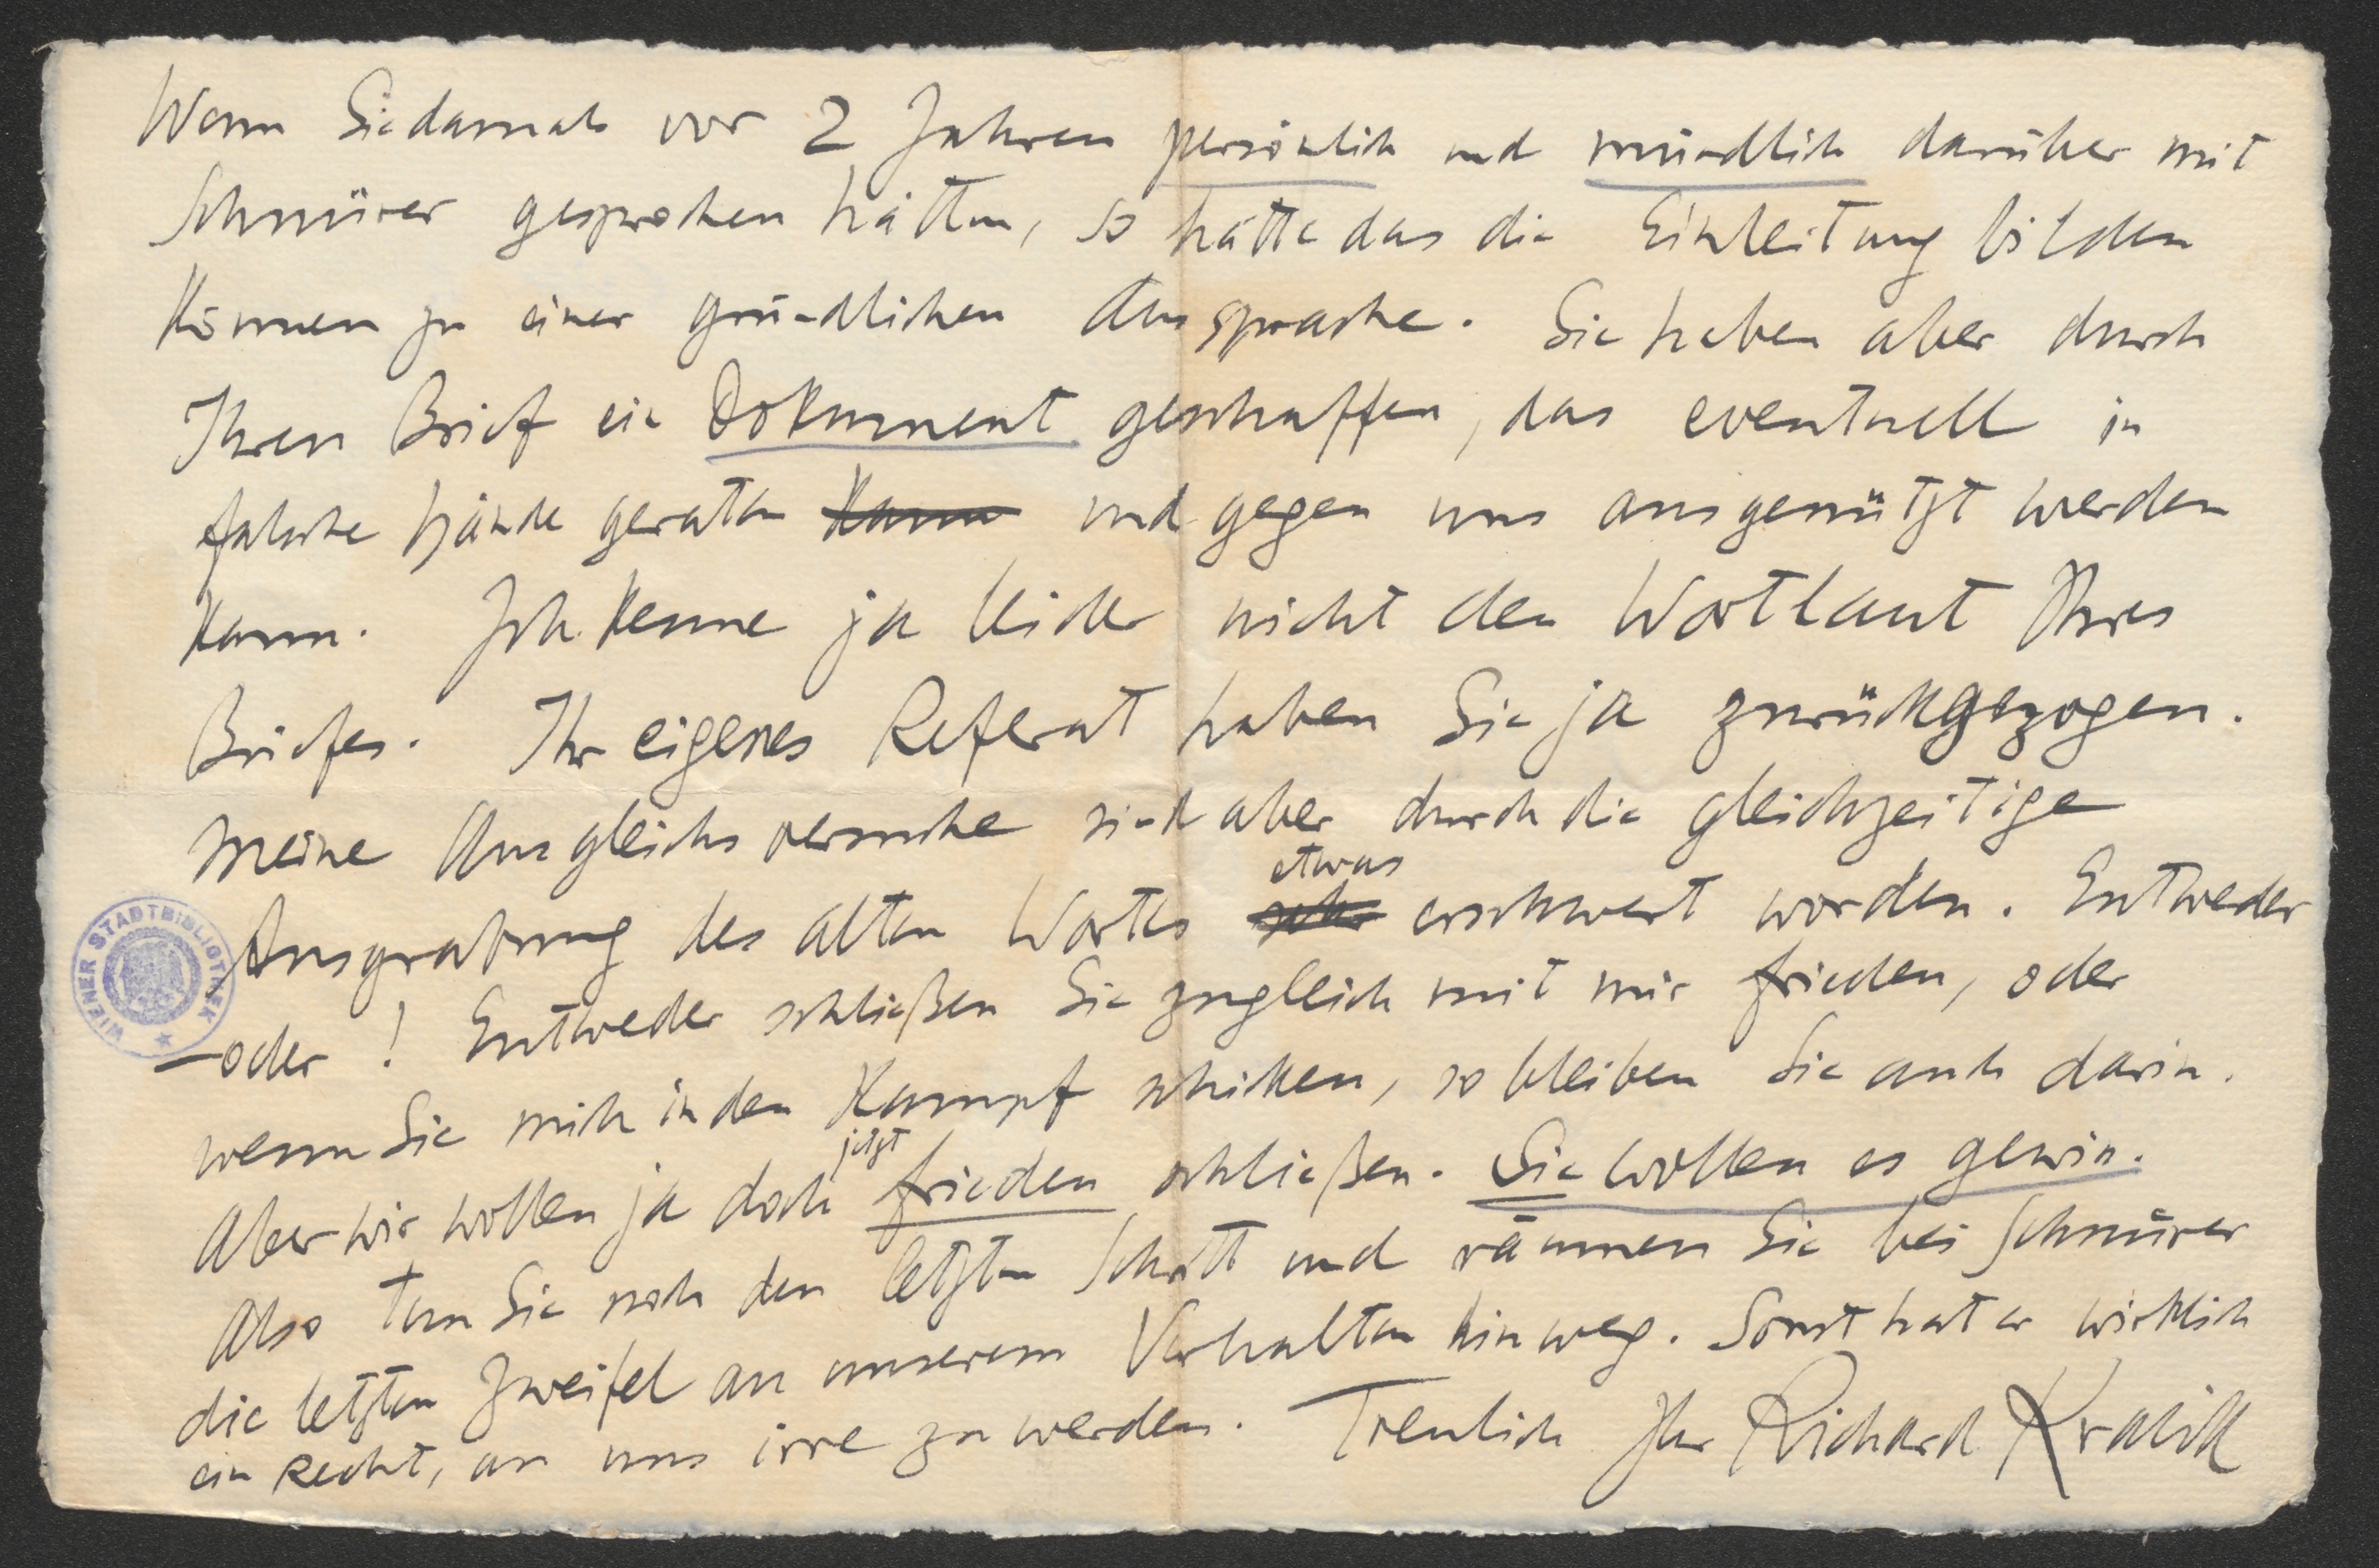 Wenn Sie damals vor 2 Jahren persönlich und mündlich darüber mit
Schnürer gesprochen hätten, so hätte das die Einleitung bilden
können zu einer gründlichen Aussprache. Sie haben aber durch
Ihren Brief ein Dokument geschaffen, das eventuell in
falsche Hände geraten kann und gegen uns ausgenützt werden
kann. Ich kenne ja leider nicht den Wortlaut Ihres
Briefes. Ihr eigenes Referat haben Sie ja zurückgezogen.
Meine Ausgleichsversuche sind aber durch die gleichzeitige
etwas
Ausgrabung des alten Wortes sehr erschwert worden. Entweder
WIENER STADTBIBLIOTHEK
– oder! Entweder schließen Sie zugleich mit mir Frieden, oder
wenn Sie mich in den Kampf schicken, so bleiben Sie auch darin.
jetzt
Aber wir wollen ja doch Frieden schließen. Sie wollen es gewiss.
Also tun Sie noch den letzten Schritt und räumen Sie bei Schnürer
die letzten Zweifel an unserem Verhalten hinweg. Sonst hat er wirklich
ein Recht, an uns irre zu werden. Treulich Ihr Richard Kralik